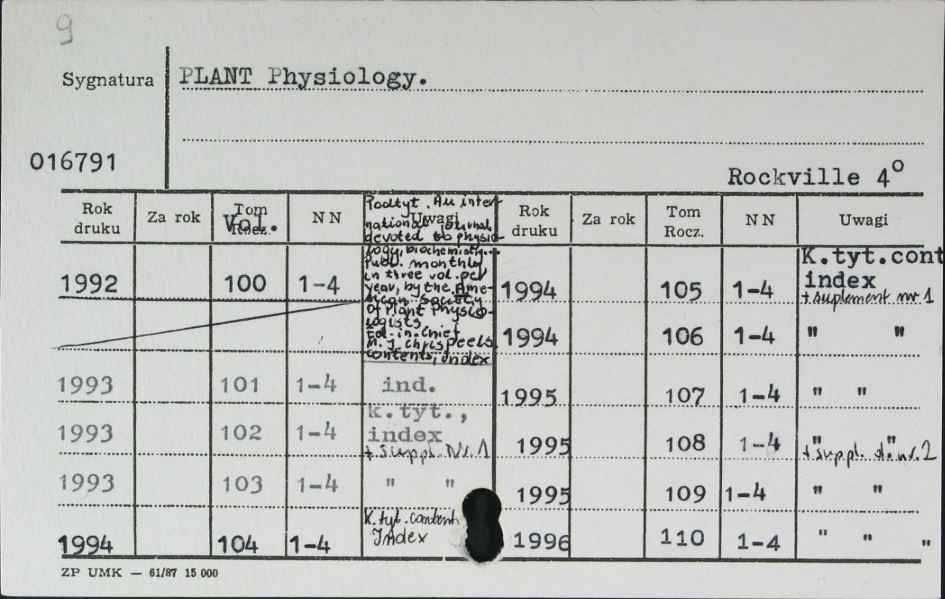 9
Sygnatura PLANT Physiology.
016791
Rockville 4°
Rok druku Za rok Tom Rocz. Vol. N N Uwagi Rok druku Za rok Tom Rocz. N N Uwagi
Podtyt. An inter-
national journal
devoted to physio-
logy, biochemistry...
Publ. monthly
in three vol. per
year, by the Ame-
rican Society
of Plant Physio-
logists
Ed.-in-Chief
M. J. Chrispeels
contents, index
1992 100 1-4
1993 101 1-4 ind.
1993 102 1-4 k.tyt., index
+ suppl. Nr. 1
1993 103 1-4 " "
1994 104 1-4 K.tyt. content
Index
1994 105 1-4 K.tyt.cont
index
+ suplement nr. 1
1994 106 1-4 " "
1995 107 1-4 " "
1995 108 1-4 " "
+ suppl. do nr. 2
1995 109 1-4 " "
1996 110 1-4 " " "
ZP UMK — 61/87 15 000